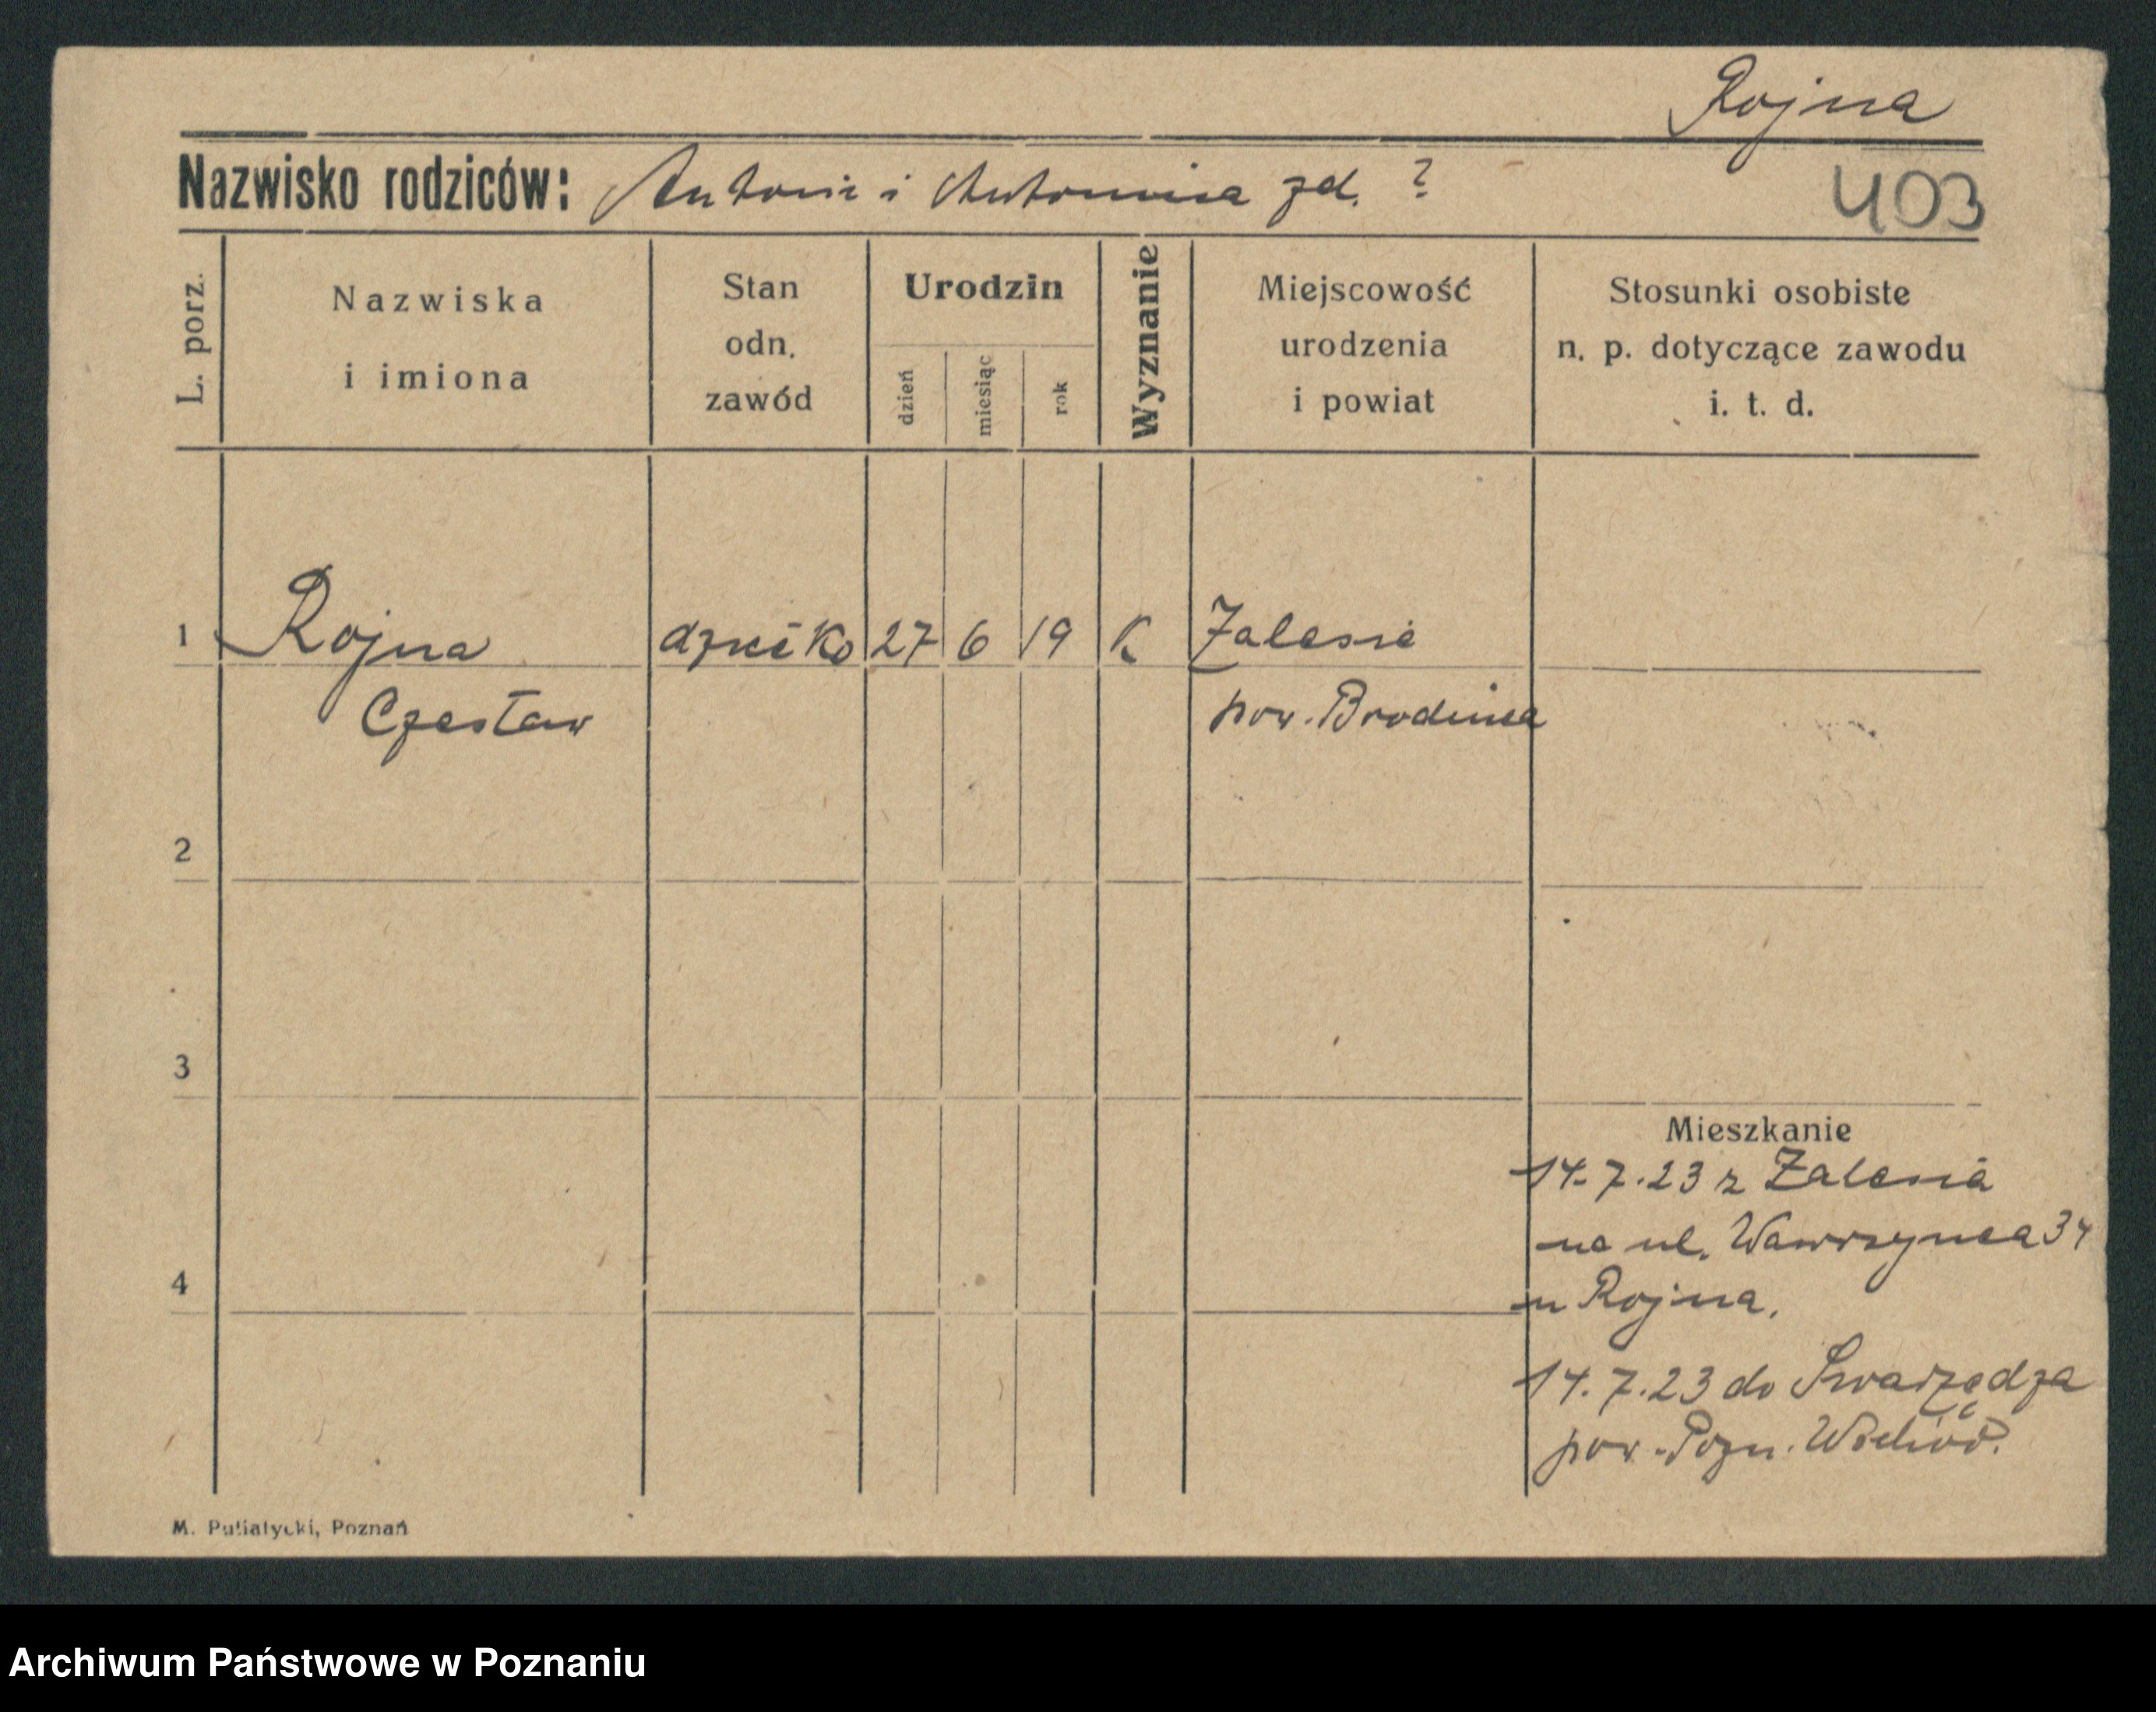 Rojna
Nazwisko rodziców: Antoni i Antonina zd. ?
403
L. porz.
Nazwiska
i imiona
Stan
odn.
zawód
Urodzin
dzień
miesiąc
rok
Wyznanie
Miejscowość
urodzenia
i powiat
Stosunki osobiste
n. p. dotyczące zawodu
i. t. d.
1 Rojna dziecko 27 6 19 K Zalesie
Czesław pow. Brodnica
2
3
Mieszkanie
14.7.23 z Zalesia
na ul. Wawrzynca 34
4
u Rojna.
14.7.23 do Swarzędza
pow. Pozn. Wschód.
M. Putiatycki, Poznań
Archiwum Państwowe w Poznaniu